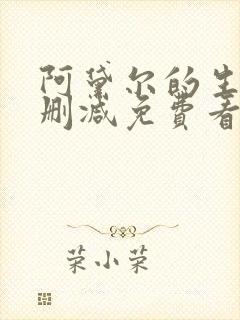 阿黛尔的生
删减免費看
荣小荣